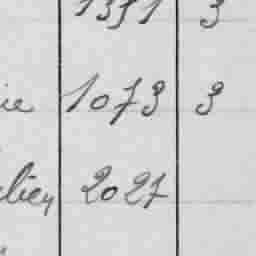 1351 3
ie 1073 3
lien 2027